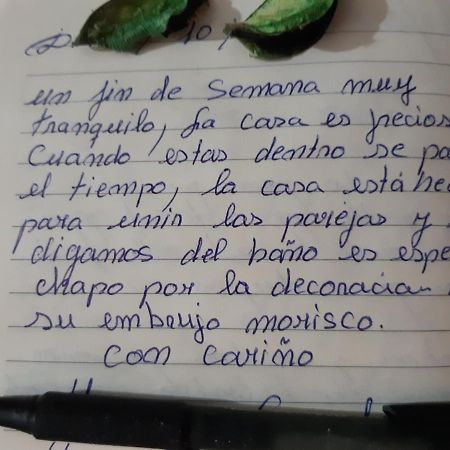 10 j
un fin de Semana muy
tranquilo, La casa es precios
Cuando estas dentro se pa
el tiempo, la casa está he
para unir las parejas y
digamos del baño es espe
chapo por la decoración
su embrujo morisco.
con cariño